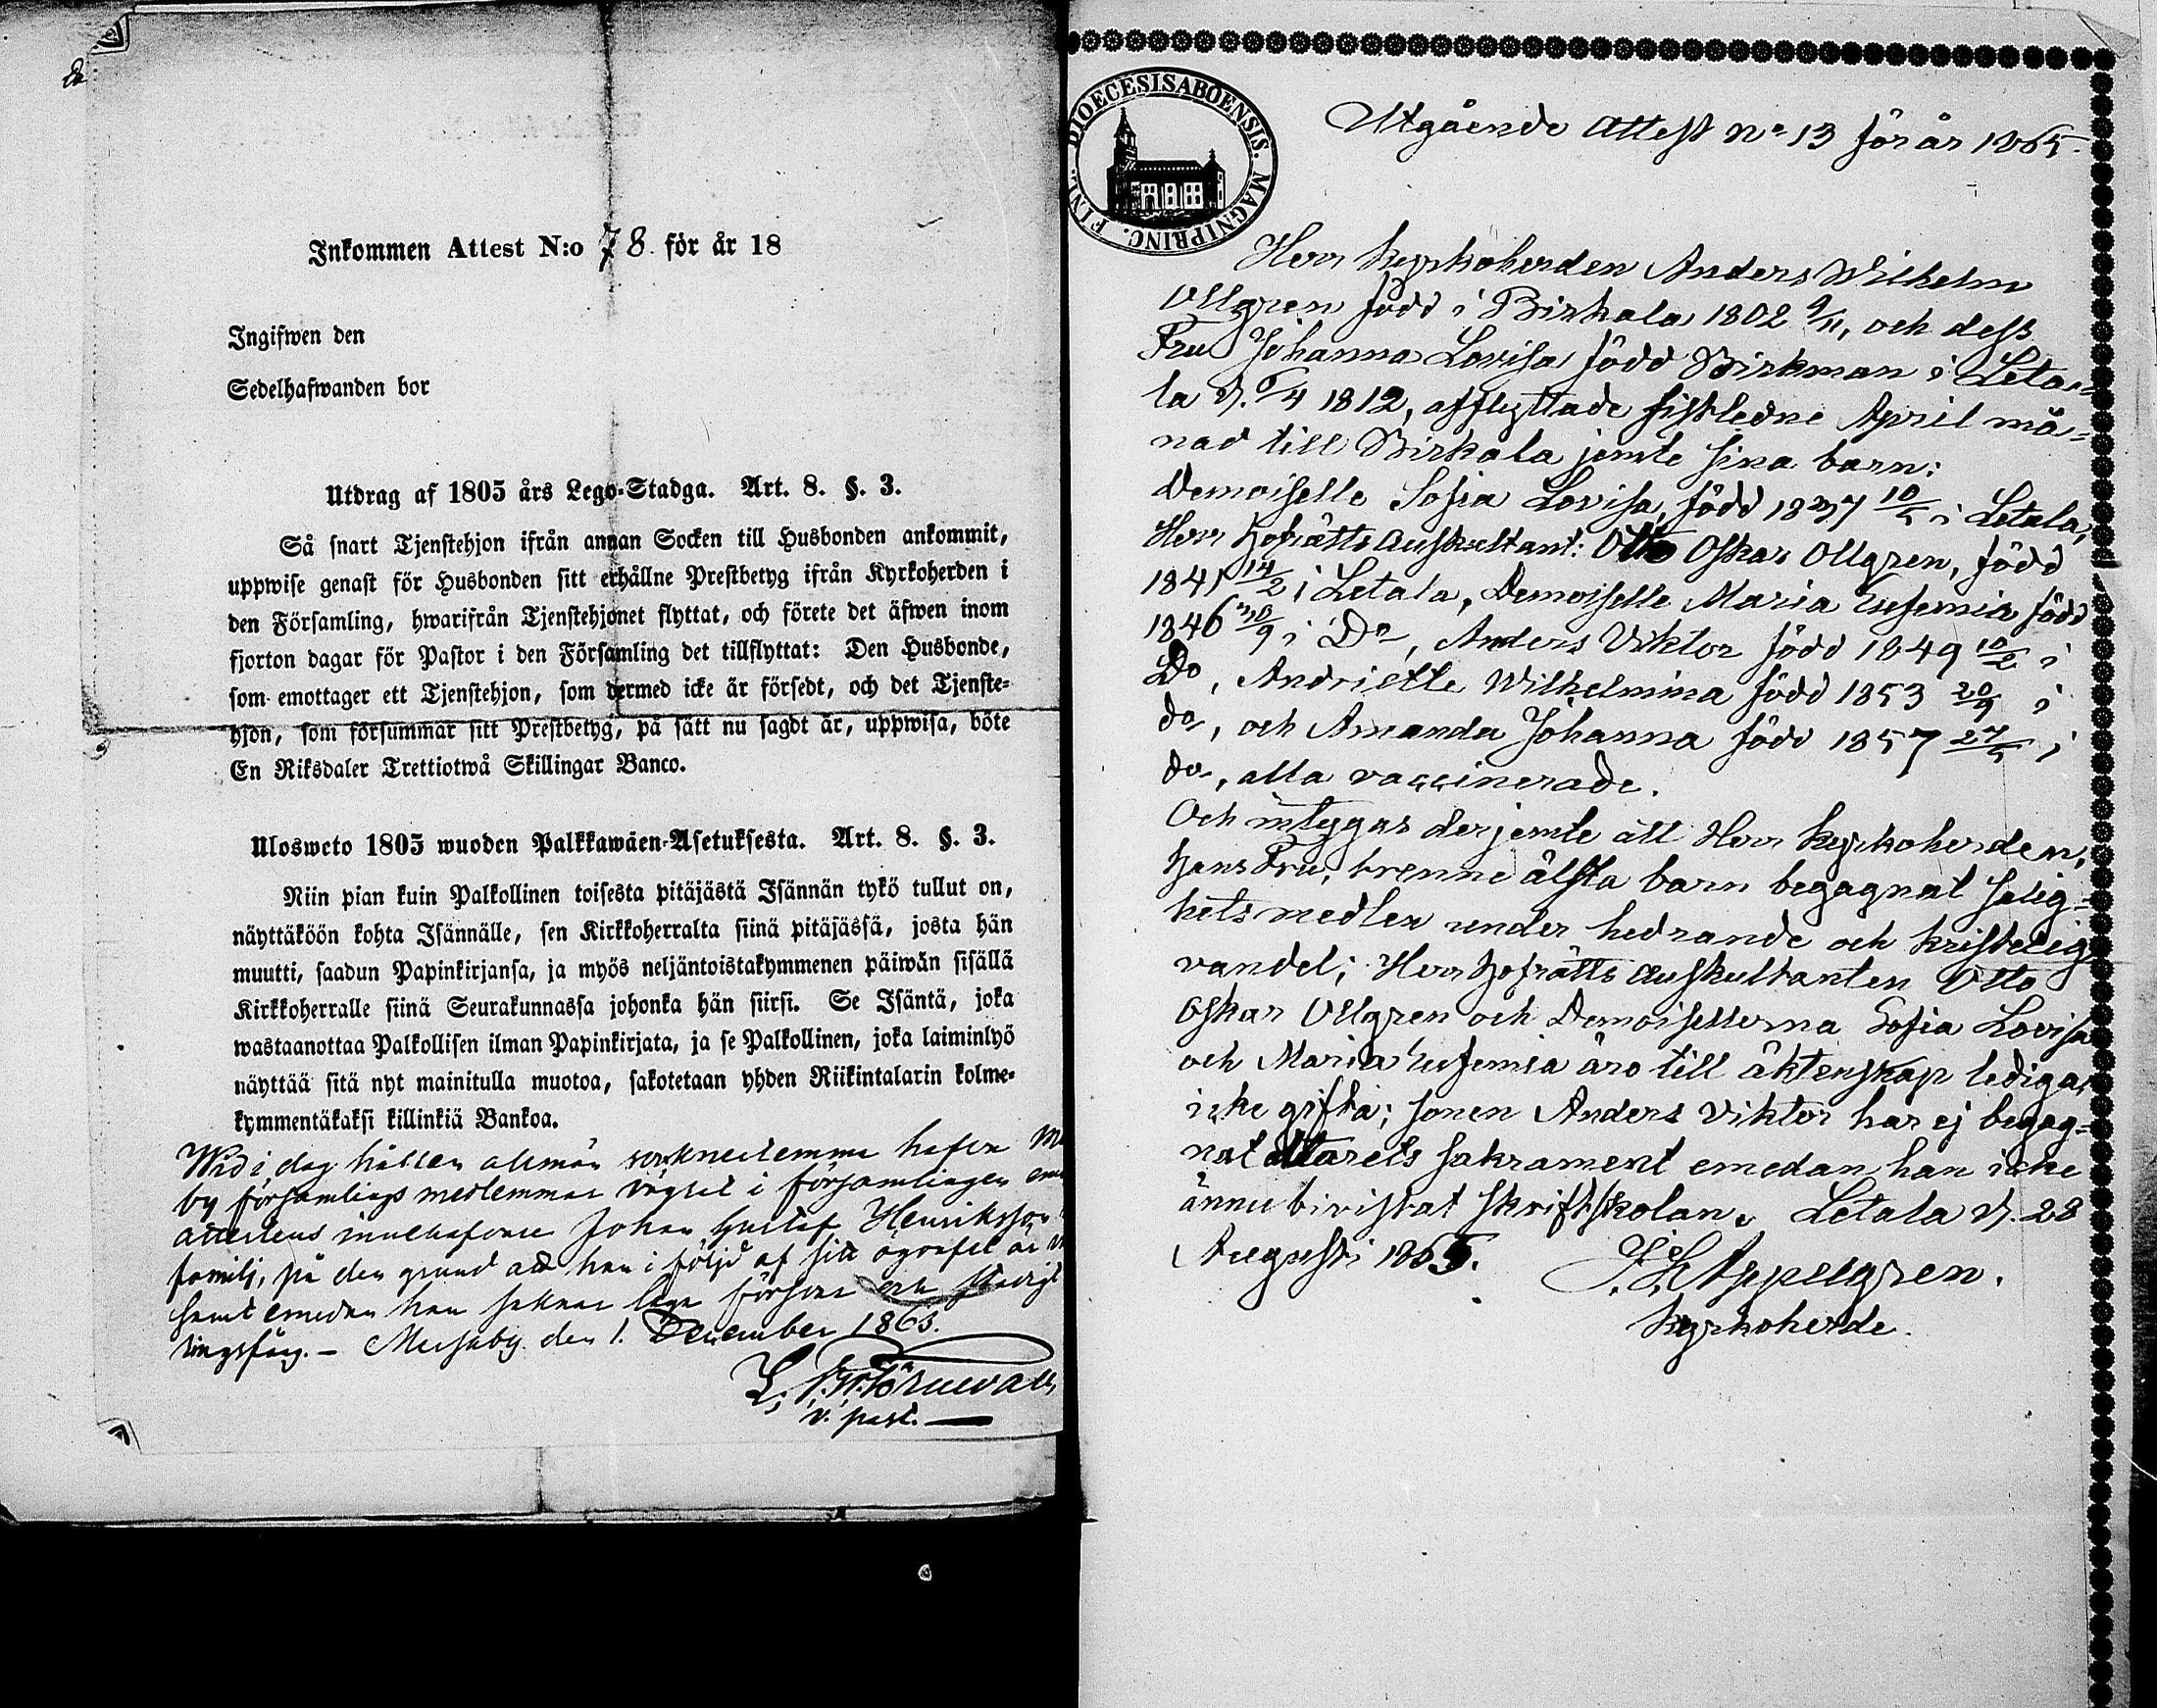 Inkommen Attest N:o 78. för år 18
Ingifwen den
Sedelhafwanden bor
Utdrag af 1805 års Lego-Stadga. Art. 8. §. 3.
Så snart Tjenstehjon ifrån annan Socken till Husbonden ankommit,
uppwise genast för Husbonden sitt erhållne Prestbetyg ifrån Kyrkoherden i
den Församling, hwarifrån Tjenstehjonet flyttat, och förete det äfwen inom
fjorton dagar för Pastor i den Församling det tillflyttat: Den Husbonde,
som emottager ett Tjenstehjon, som dermed icke är försedt, och det Tjenste-
hjon, som försummar sitt Prestbetyg, på sätt nu sagdt är, uppwisa, böte
En Riksdaler Trettiotwå Skillingar Banco.
Ulosweto 1805 wuoden Palkkawäen-Asetuksesta. Art. 8. §. 3.
Niin pian kuin Palkollinen toisesta pitäjästä Isännän tykö tullut on,
näyttäköön kohta Isännälle, sen Kirkkoherralta siinä pitäjässä, josta hän
muutti, saadun Papinkirjansa, ja myös neljäntoistakymmenen päiwän sisällä
Kirkkoherralle siinä Seurakunnassa johonka hän siirsi. Se Isäntä, joka
wastaanottaa Palkollisen ilman Papinkirjata, ja se Palkollinen, joka laiminlyö
näyttää sitä nyt mainitulla muotoa, sakotetaan yhden Riikintalarin kolme-
kymmentäkaksi killinkiä Bankoa.
Wid i dag hållen allmän sockne hafva
by församlings medlemmar vägrat i församlingen
attestens innehafvare Johan Gustaf Henriksson
familj, på den grund att han i följd af sitt ögonfel är
samt emedan han saknar laga försvar och stadigt
ringsfång. – den 1. December 1863.
v. past.
Utgående Attest No 13 för år 1865.
DIOECESIS ABOENSIS. MAGNI PRINC. FINL.
Herr Kyrkoherden Anders Wilhelm
Ollgren född i Birkala 1802 9/11, och dess
Fru Johanna Lovisa född Birkman i Leta-
la d. 6/4 1812, afflyttade sistledne April må-
nad till Birkala jemte sina barn:
Demoiselle Sofia Lovisa, född 1837 10/5 i Letala,
Herr Hofrätts Auskultant: Otto Oskar Ollgren, född
1841 14/2 i Letala, Demoiselle Maria Eufemia född
1846 20/9 i Do, Anders Viktor född 1849 10/2 i
Do, Andriette Wilhelmina född 1853 20/9 i
do, och Amanda Johanna född 1857 27/5 i
do, alla vaccinerade.
Och intygas derjemte att Herr Kyrkoherden,
hans Fru, trenne älsta barn begagnat salig-
hets medlen under hedrande och kristelig
vandel; Herr Hofrätts Auskultanten Otto
Oskar Ollgren och Demoisellerna Sofia Lovisa
och Maria Eufemia äro till äktenskap lediga,
icke gifta; sonen Anders Viktor har ej begag-
nat altarets sakrament emedan han icke
ännu bivistat skriftskolan. Letala d. 28
Augusti 1865. Appelgren.
Kyrkoherde.